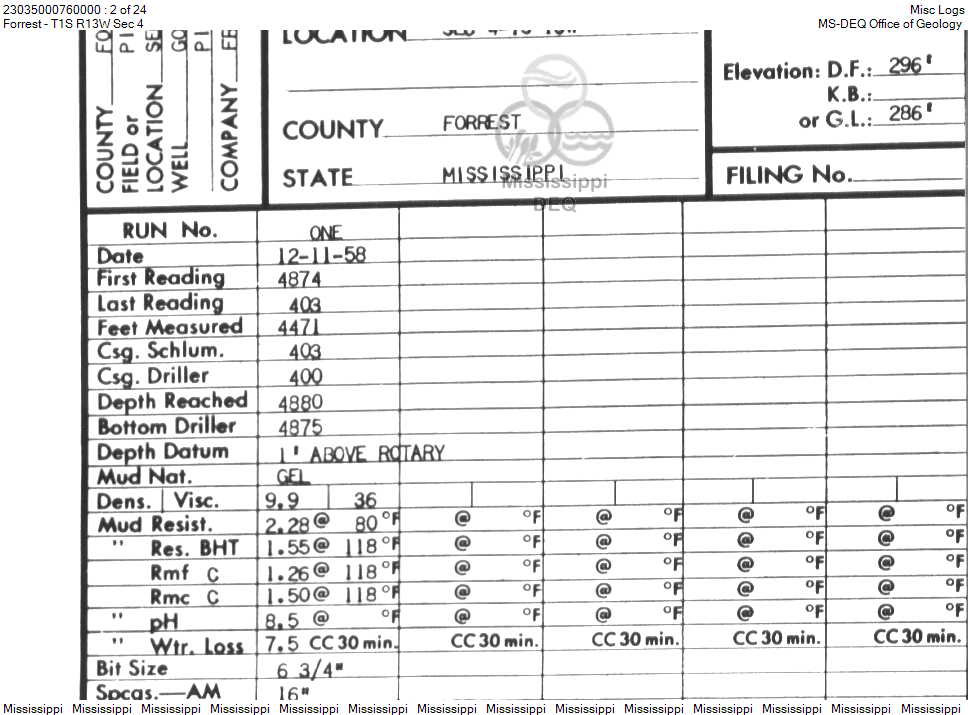 23035000760000 : 2 of 24 Misc Logs
Forrest - T1S R13W Sec 4 MS-DEQ Office of Geology
COUNTY
FIELD or
LOCATION
WELL
COMPANY
LOCATION
COUNTY FORREST
STATE MISSISSIPPI
Mississippi
DEQ
Elevation: D.F.: 296'
K.B.:
or G.L.: 286'
FILING No.
RUN No. ONE
Date 12-11-58
First Reading 4874
Last Reading 403
Feet Measured 4471
Csg. Schlum. 403
Csg. Driller 400
Depth Reached 4880
Bottom Driller 4875
Depth Datum 1' ABOVE ROTARY
Mud Nat. GEL
Dens. | Visc. 9.9 | 36
Mud Resist. 2.28 @ 80 °F @ °F @ °F @ °F @ °F
" Res. BHT 1.55 @ 118 °F @ °F @ °F @ °F @ °F
Rmf C 1.26 @ 118 °F @ °F @ °F @ °F @ °F
Rmc C 1.50 @ 118 °F @ °F @ °F @ °F @ °F
" pH 8.5 @ °F @ °F @ °F @ °F @ °F
" Wtr. Loss 7.5 CC 30 min. CC 30 min. CC 30 min. CC 30 min. CC 30 min.
Bit Size 6 3/4"
Spcgs.—AM 16"
Mississippi Mississippi Mississippi Mississippi Mississippi Mississippi Mississippi Mississippi Mississippi Mississippi Mississippi Mississippi Mississippi Mississippi